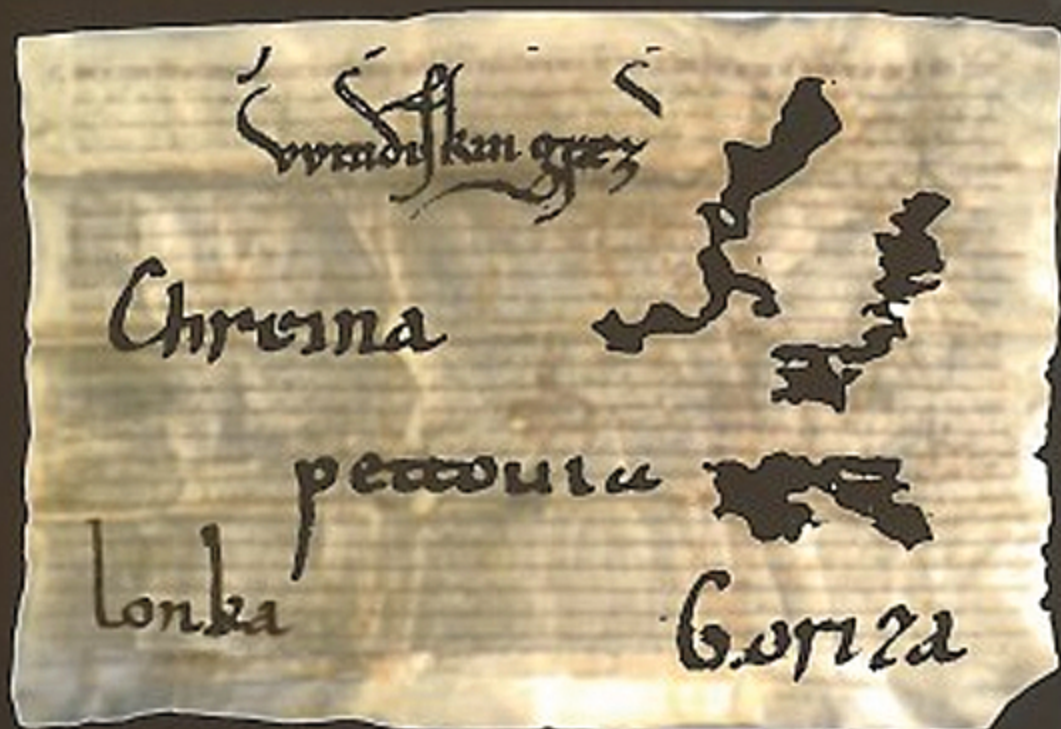 vvindiſkin grez
Chreina
pettouia
lonka
Goriza